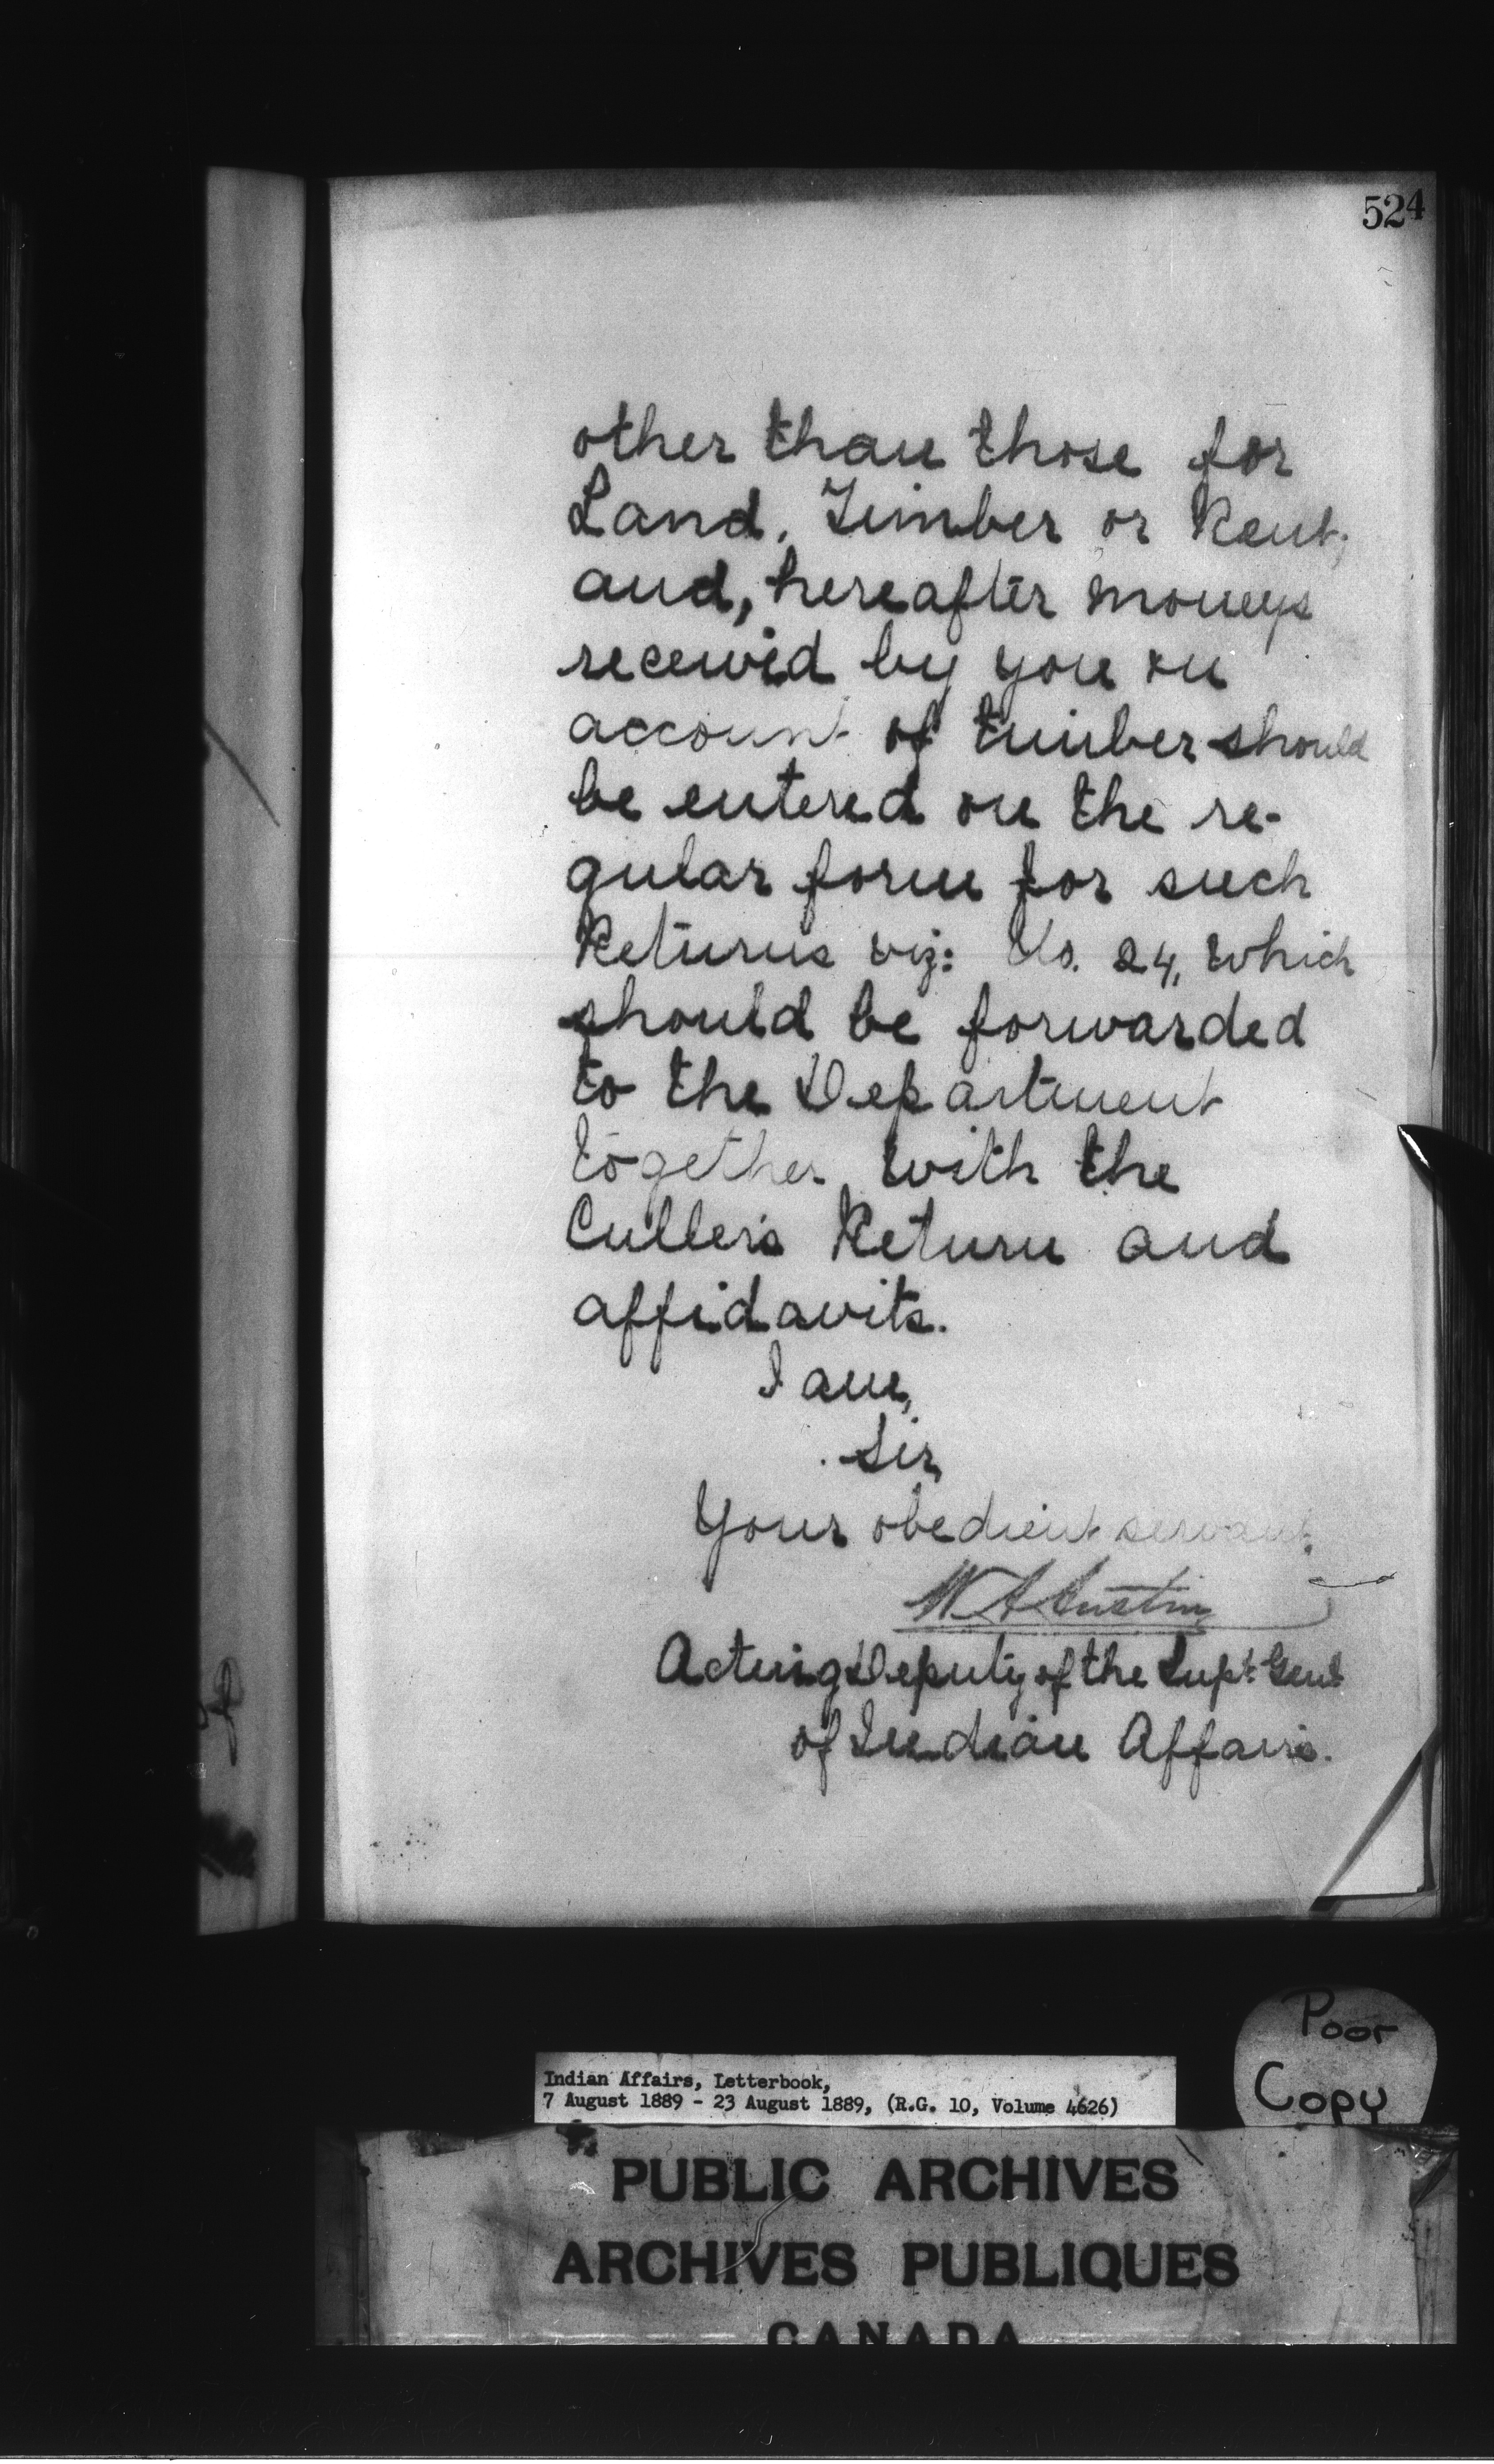 524
other than those for
Land, Timber or Rent;
and, hereafter moneys
received by you on
account of timber should
be entered on the re-
gular form for such
Returns viz: No. 24, which
should be forwarded
to the Department
together with the
Culler's Return and
affidavits.
I am,
Sir,
Your obedient servant.
W A Austin
Acting Deputy of the Supt. Genl
of Indian Affairs.
Poor
Copy
Indian Affairs, Letterbook,
7 August 1889 - 23 August 1889, (R.G. 10, Volume 4626)
PUBLIC ARCHIVES
ARCHIVES PUBLIQUES
CANADA